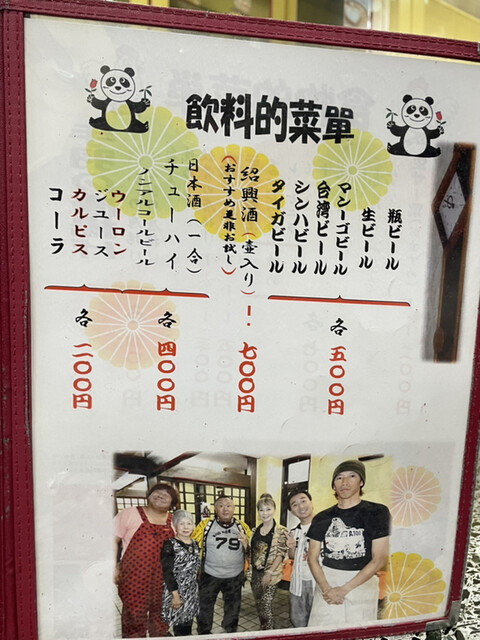 飲料的菜單
瓶ビール
生ビール
マンゴービール
台湾ビール
シンハビール
タイガビール
各 五〇〇円
紹興酒(壷入り)
(おすすめ是非お試し)
七〇〇円
日本酒(一合)
チューハイ
ノンアルコールビール
各 四〇〇円
ウーロン
ジュース
カルピス
コーラ
各 二〇〇円
79